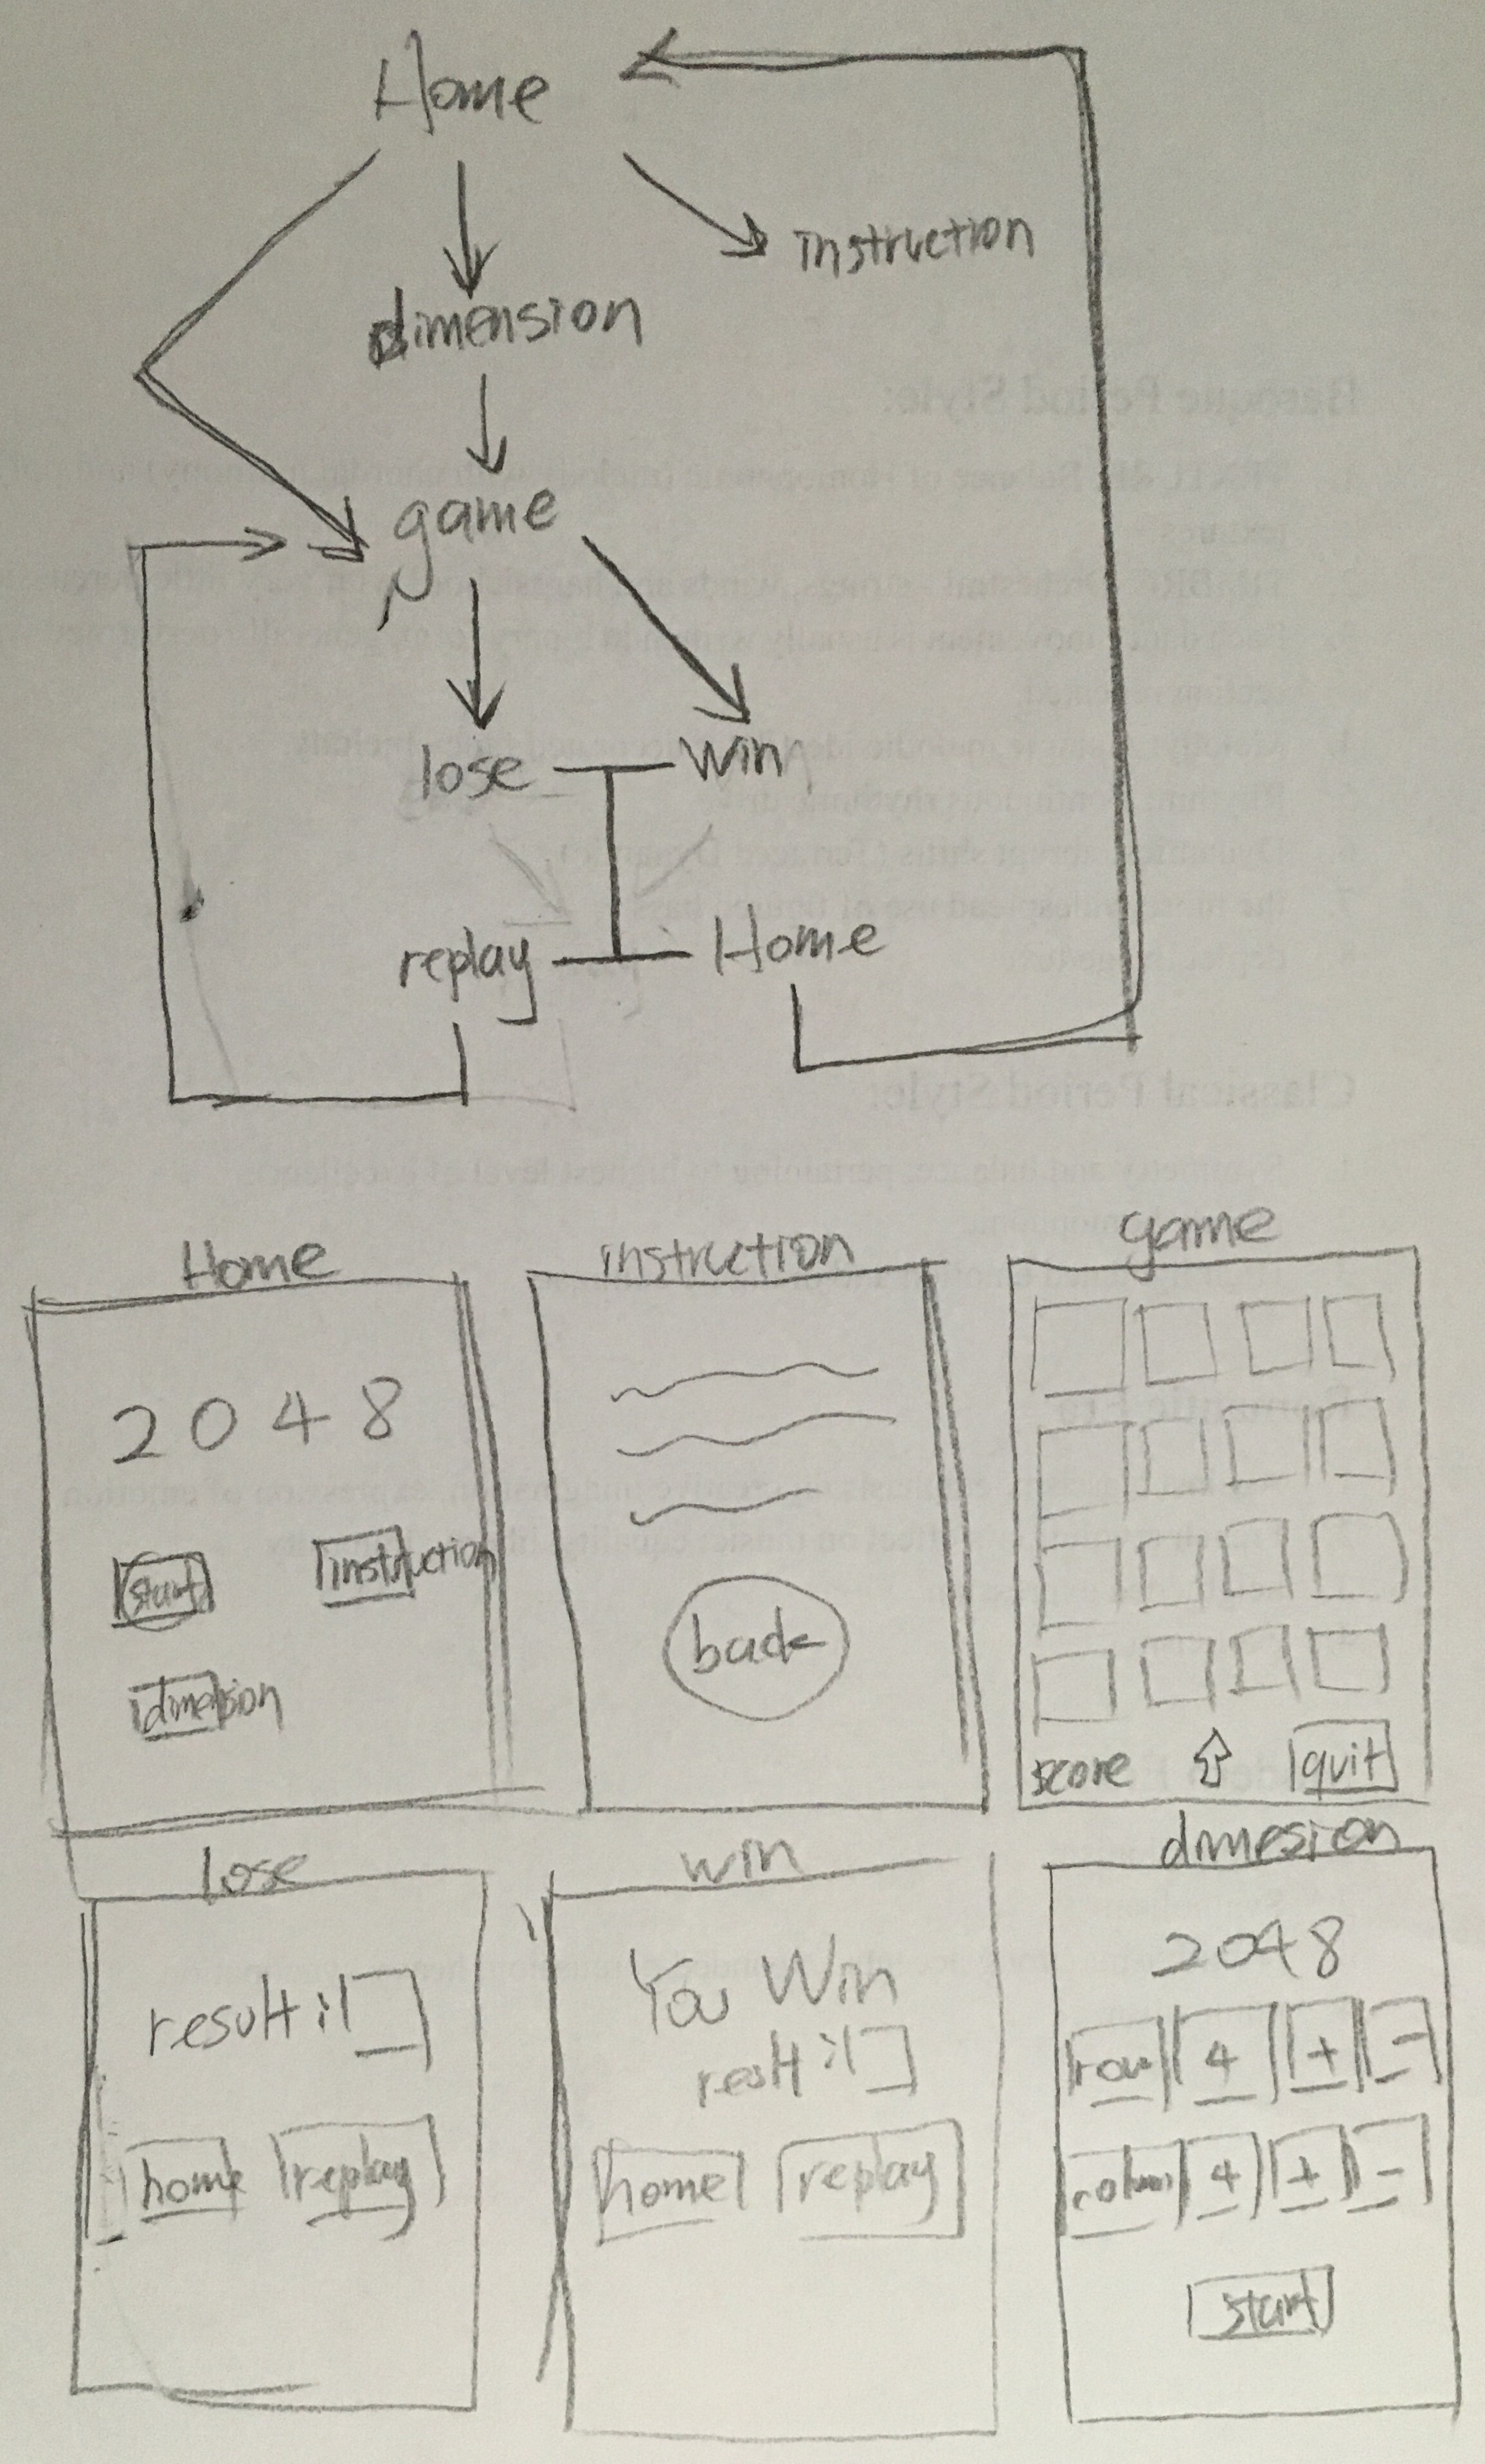 Home
instruction
dimension
game
lose win
replay Home
Baroque Period Style:
Classical Period Style:
Home
2048
start instruction
dimension
instruction
back
game
score quit
lose
result:
home replay
win
You Win
reslt:
home replay
dimesion
2048
row 4 + -
column 4 + -
start